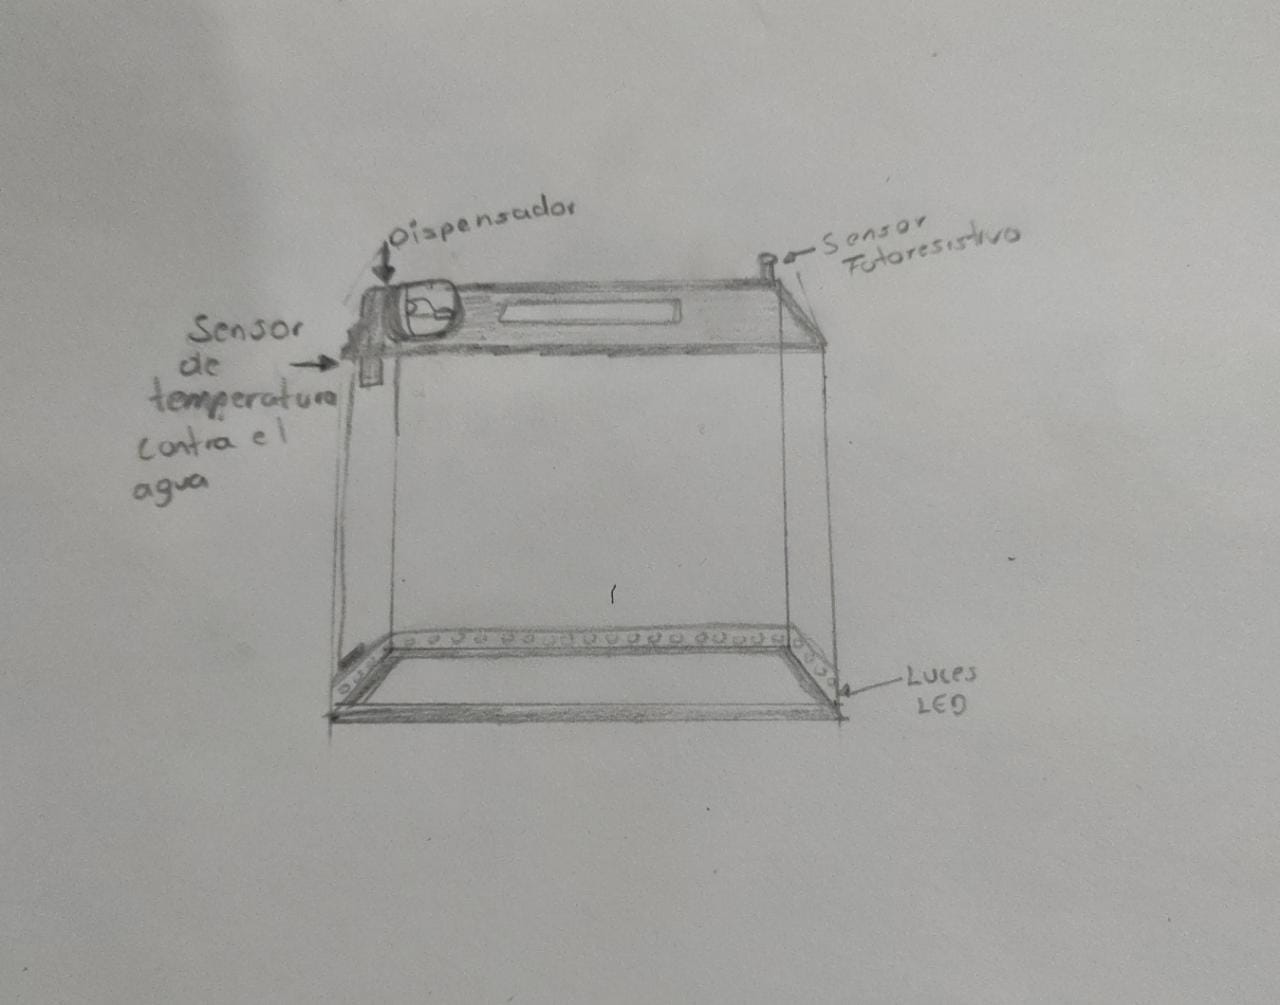 Dispensador
Sensor
Fotoresistivo
Sensor
de
temperatura
contra el
agua
Luces
LED